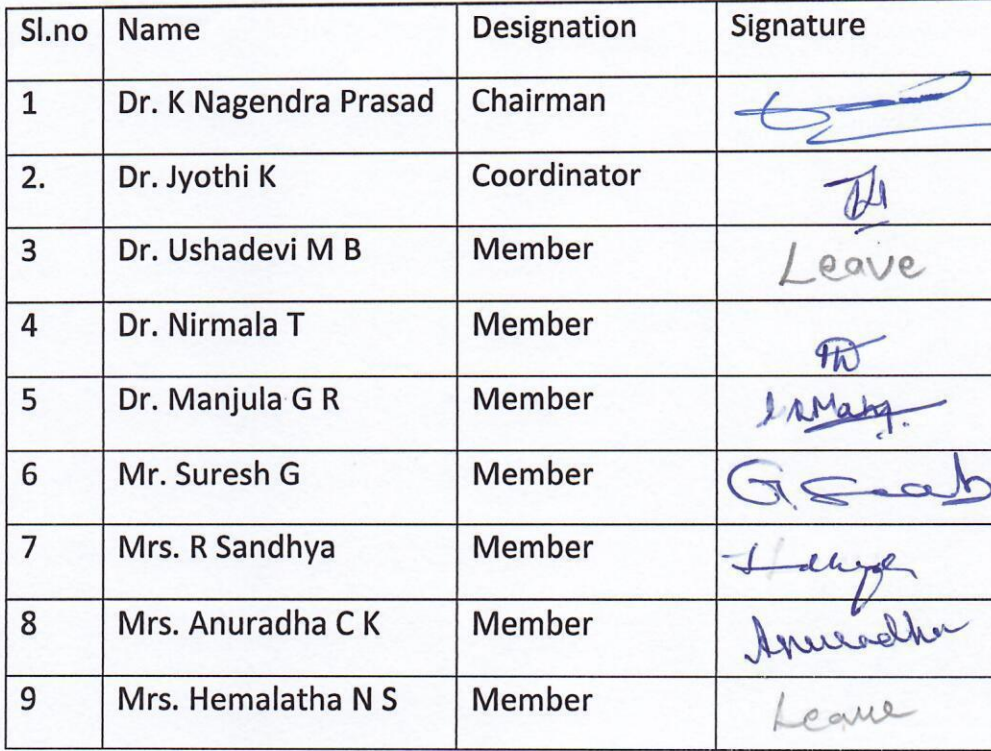 Sl.no Name Designation Signature
1 Dr. K Nagendra Prasad Chairman
2. Dr. Jyothi K Coordinator
3 Dr. Ushadevi M B Member Leave
4 Dr. Nirmala T Member
5 Dr. Manjula G R Member
6 Mr. Suresh G Member
7 Mrs. R Sandhya Member
8 Mrs. Anuradha C K Member Anuradha
9 Mrs. Hemalatha N S Member Leave